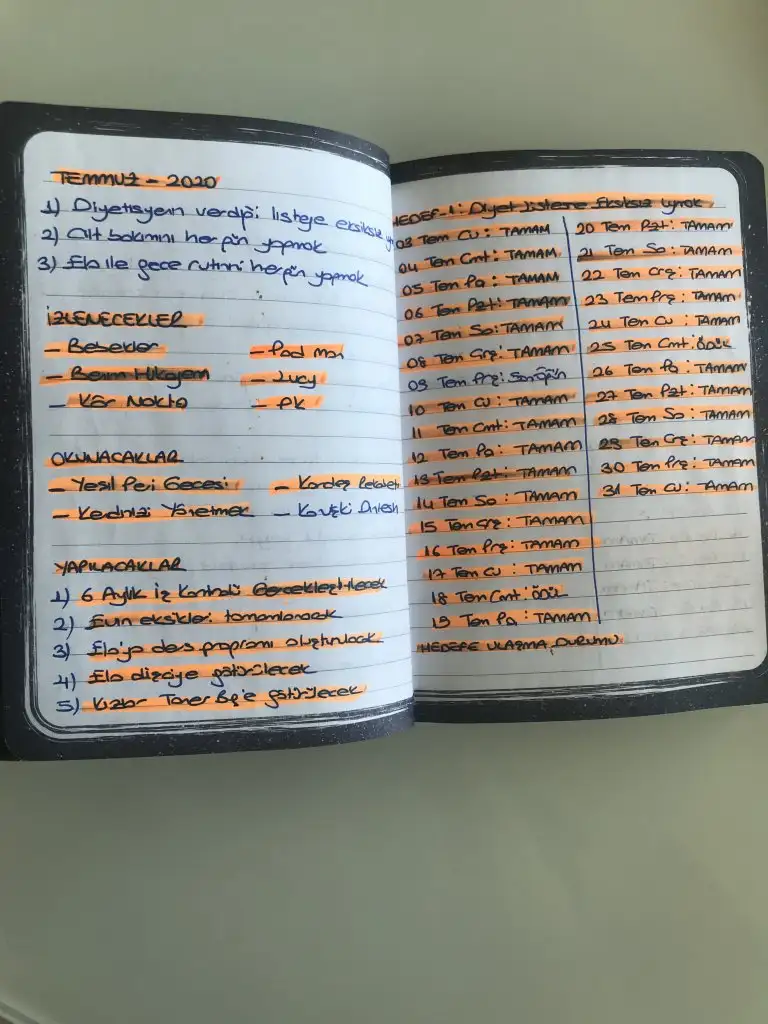 TEMMUZ - 2020
1) Diyetisyenin verdiği listeye eksiksiz
2) Cilt bakımını her gün yapmak
3) Ela ile gece rutinini her gün yapmak
İZLENECEKLER
- Bebekler
- Pad man
- Benim Hikayem
- Lucy
- Kör Nokta
- PK
OKUNACAKLAR
- Yeşil Peri Gecesi
- Kardeş Rekabeti
- Kendinizi Yönetmek
YAPILACAKLAR
1) 6 Aylık iz kontrolü Gerçekleştirilecek
2) Evin eksikleri tamamlanacak
3) Ela'ya ders programı oluşturulacak
4) Ela dişçiye götürülecek
5) Kızlar Taner Bey'e götürülecek
HEDEF-1: Diyet Listeme Eksiksiz Uymak
03 Tem Cu: TAMAM
04 Tem Cmt: TAMAM
05 Tem Pa: TAMAM
06 Tem Pzt: TAMAM
07 Tem Sa: TAMAM
08 Tem Çrş: TAMAM
09 Tem Prş:
10 Tem Cu: TAMAM
11 Tem Cmt: TAMAM
12 Tem Pa: TAMAM
13 Tem Pzt: TAMAM
14 Tem Sa: TAMAM
15 Tem Çrş: TAMAM
16 Tem Prş: TAMAM
17 Tem Cu: TAMAM
18 Tem Cmt: ÖDÜL
19 Tem Pa: TAMAM
20 Tem Pzt: TAMAM
21 Tem Sa: TAMAM
22 Tem Çrş: TAMAM
23 Tem Prş: TAMAM
24 Tem Cu: TAMAM
25 Tem Cmt: ÖDÜL
26 Tem Pa: TAMAM
27 Tem Pzt: TAMAM
28 Tem Sa: TAMAM
29 Tem Çrş: TAMAM
30 Tem Prş: TAMAM
31 Tem Cu: TAMAM
HEDEFE ULAŞMA DURUMU: